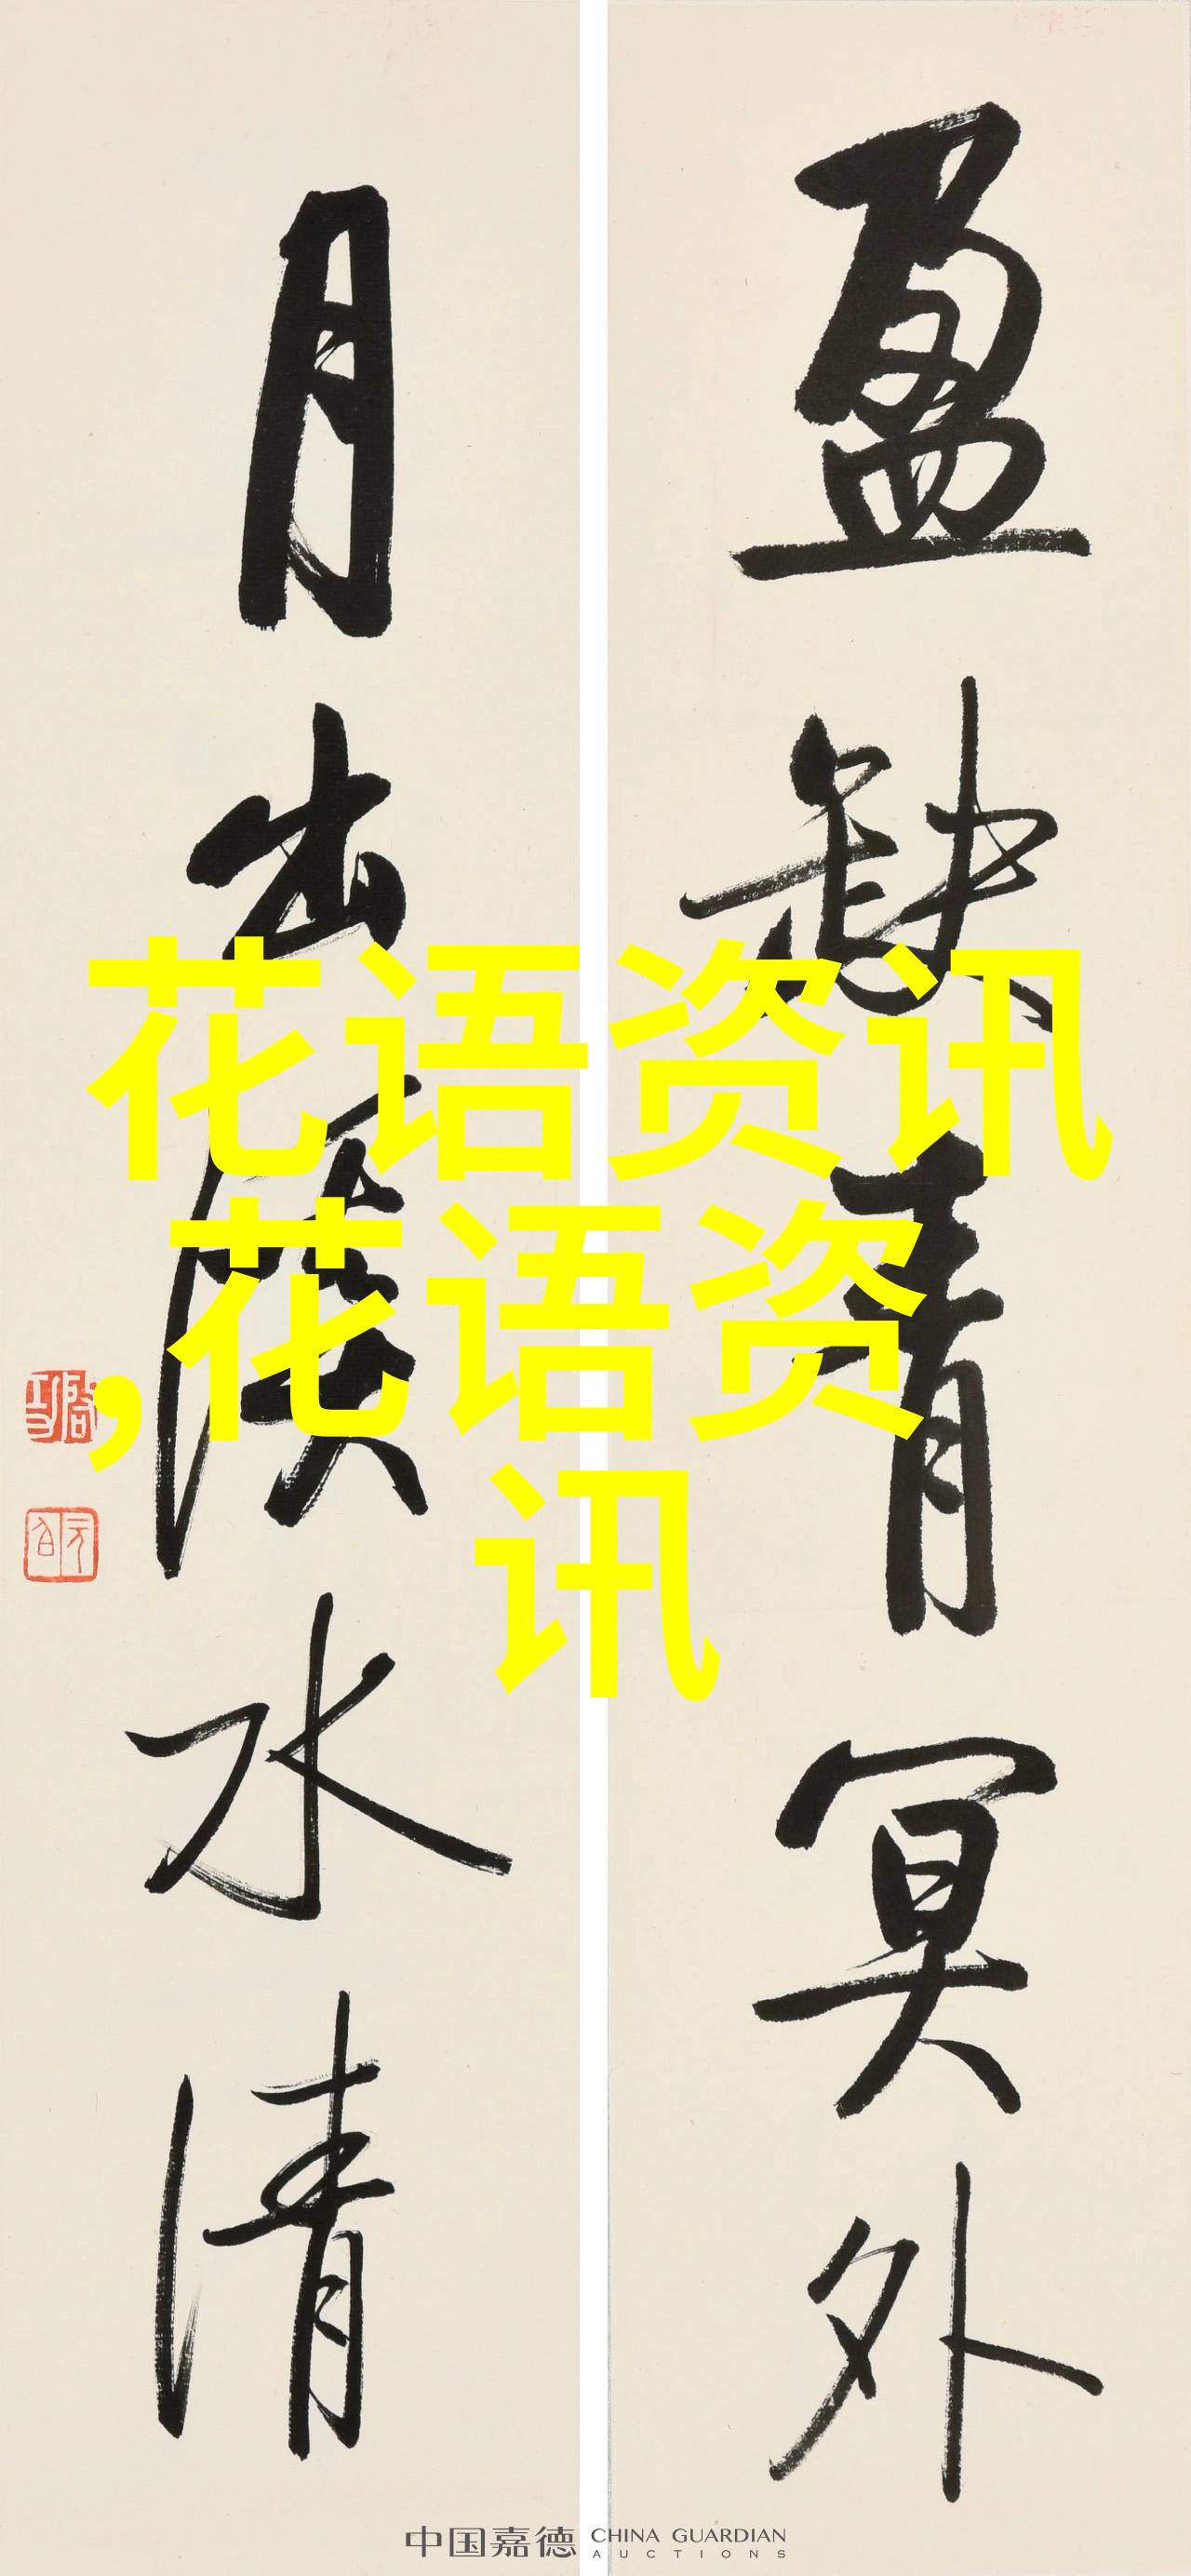 盈缺青冥外
月出水清
花语资讯
,花语资
讯
启功
元白
中国嘉德 CHINA GUARDIAN
AUCTIONS